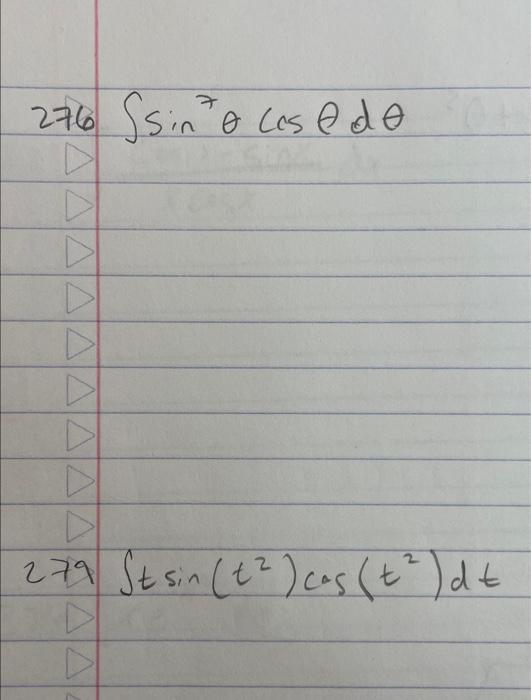 276 ∫sin⁷ θ cos θ dθ
279 ∫t sin(t²)cos(t²)dt